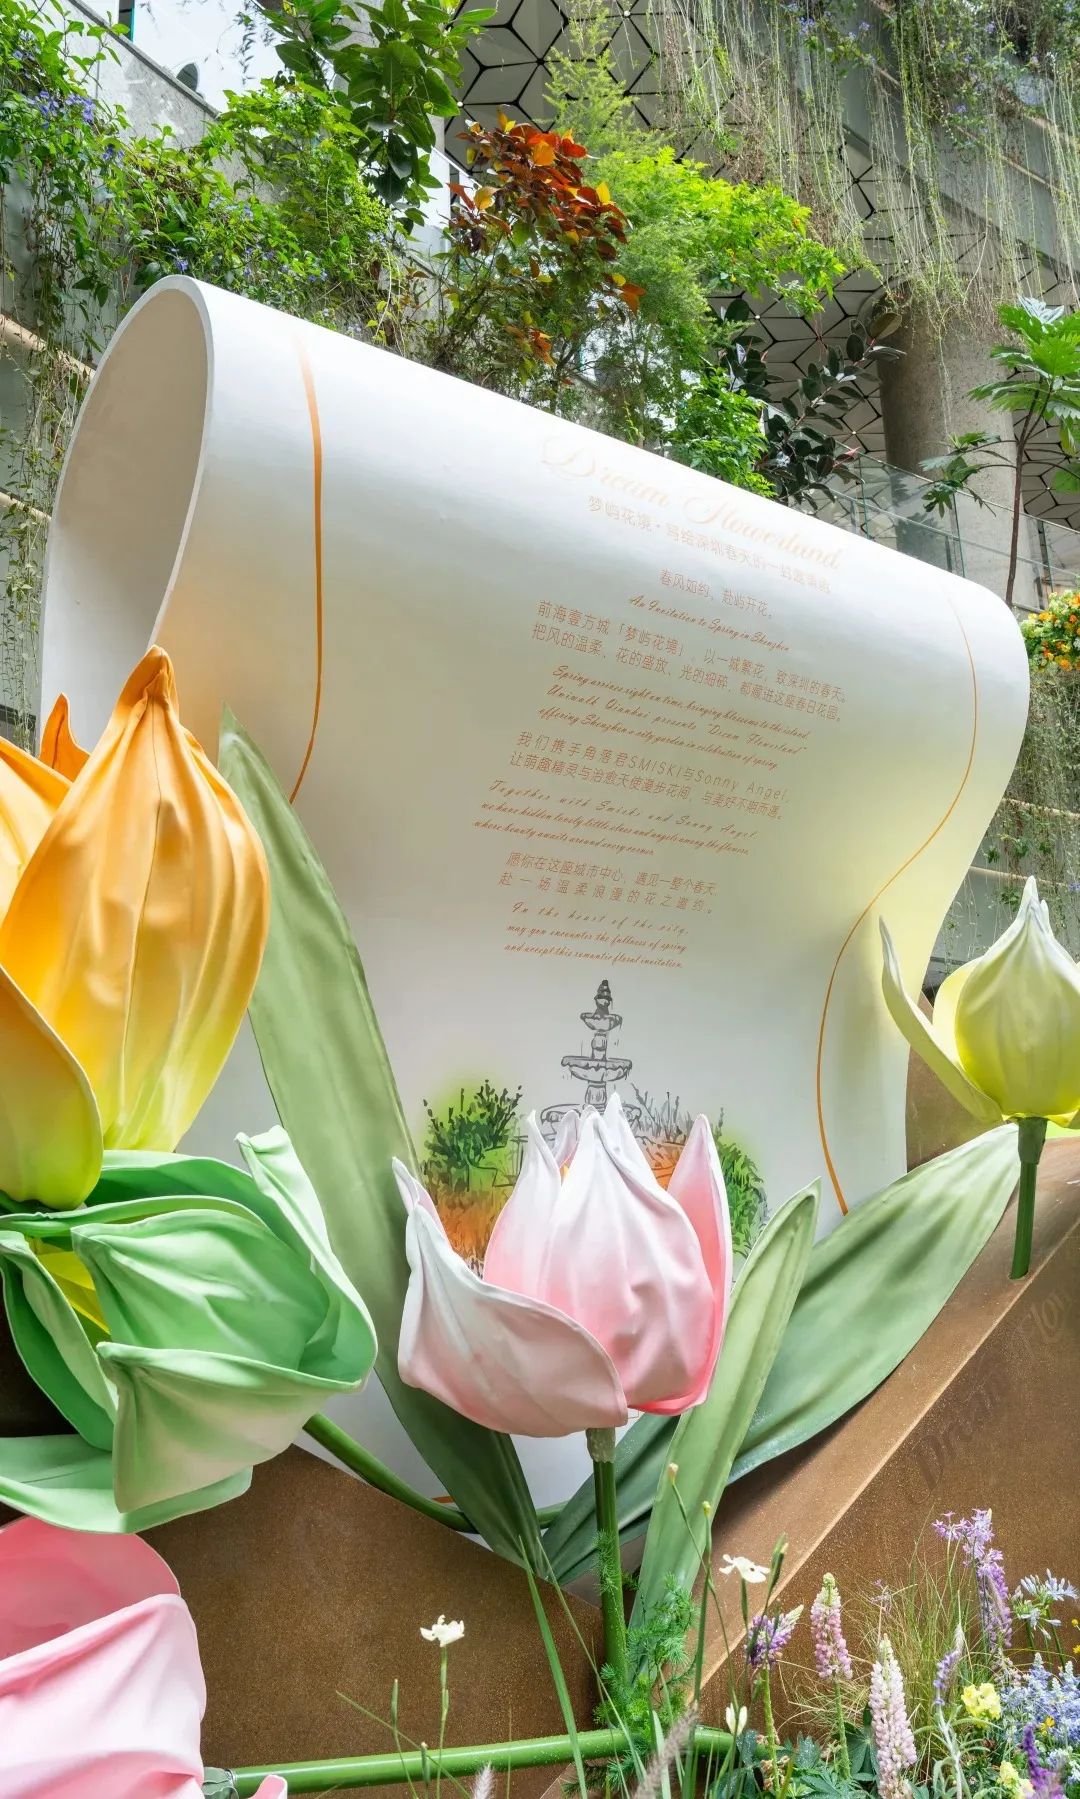 Dream Flowerland
梦屿花境·写给深圳春天的一封邀请函
春风如约，赴屿开花。
An Invitation to Spring in Shenzhen
前海壹方城「梦屿花境」，以一城繁花，致深圳的春天。
把风的温柔、花的盛放、光的细碎，都藏进这座春日花园。
Spring arrives right on time, bringing blossoms to the island
Uniwalk Qianhai presents "Dream Flowerland"
offering Shenzhen a city garden in celebration of spring
我们携手角落君SMISKI与Sonny Angel，
让萌趣精灵与治愈天使漫步花间，与美好不期而遇。
Together with Smiski and Sonny Angel,
we have hidden lovely little elves and angels among the flowers,
where beauty awaits around every corner.
愿你在这座城市中心，遇见一整个春天
赴一场温柔浪漫的花之邀约。
In the heart of the city,
may you encounter the fullness of spring
and accept this romantic floral invitation.
Dream Flow